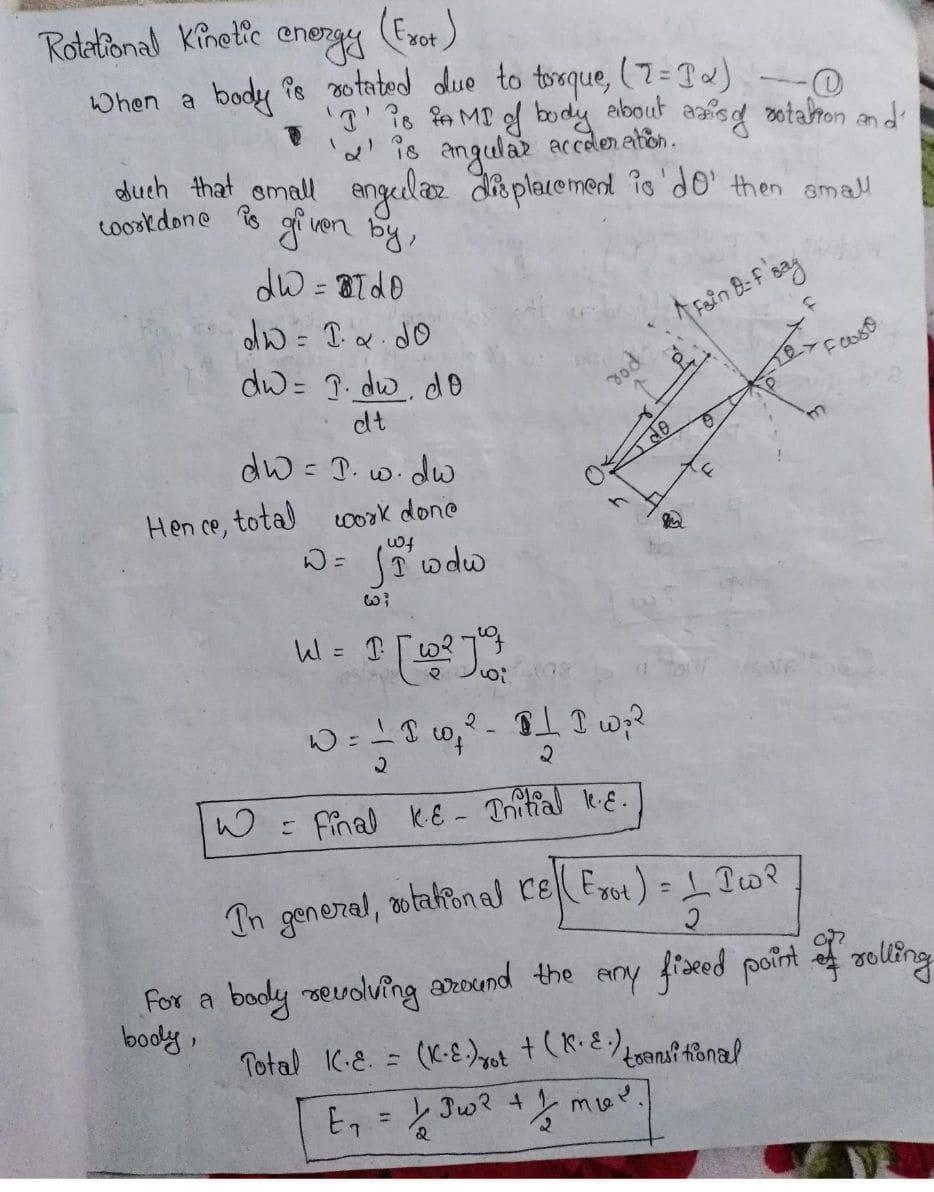 Rotational Kinetic energy (Erot)
When a body is rotated due to torque, (τ = Iα) — ①
'I' is MI of body about axis of rotation and
'α' is angular acceleration.
such that small angular displacement is 'dθ' then small
workdone is given by,
dW = τdθ
dw = I. α. dθ
dw = I. dw/dt . dθ
dw = I. ω. dω
Hence, total work done
W = ∫ωi^ωf I ωdω
W = I [ω²/2]ωi^ωf
W = 1/2 I ωf² - 1/2 I ωi²
W = Final K.E - Initial K.E.
In general, rotational KE (Erot) = 1/2 Iω²
For a body revolving around the any fixed point or rolling
body,
Total K.E. = (K.E.)rot + (K.E.)transitional
ET = 1/2 Iω² + 1/2 mv².
Fsinθ=F' say
F
θ
Fcosθ
rod
P
m
r
dθ
θ
O
F
r